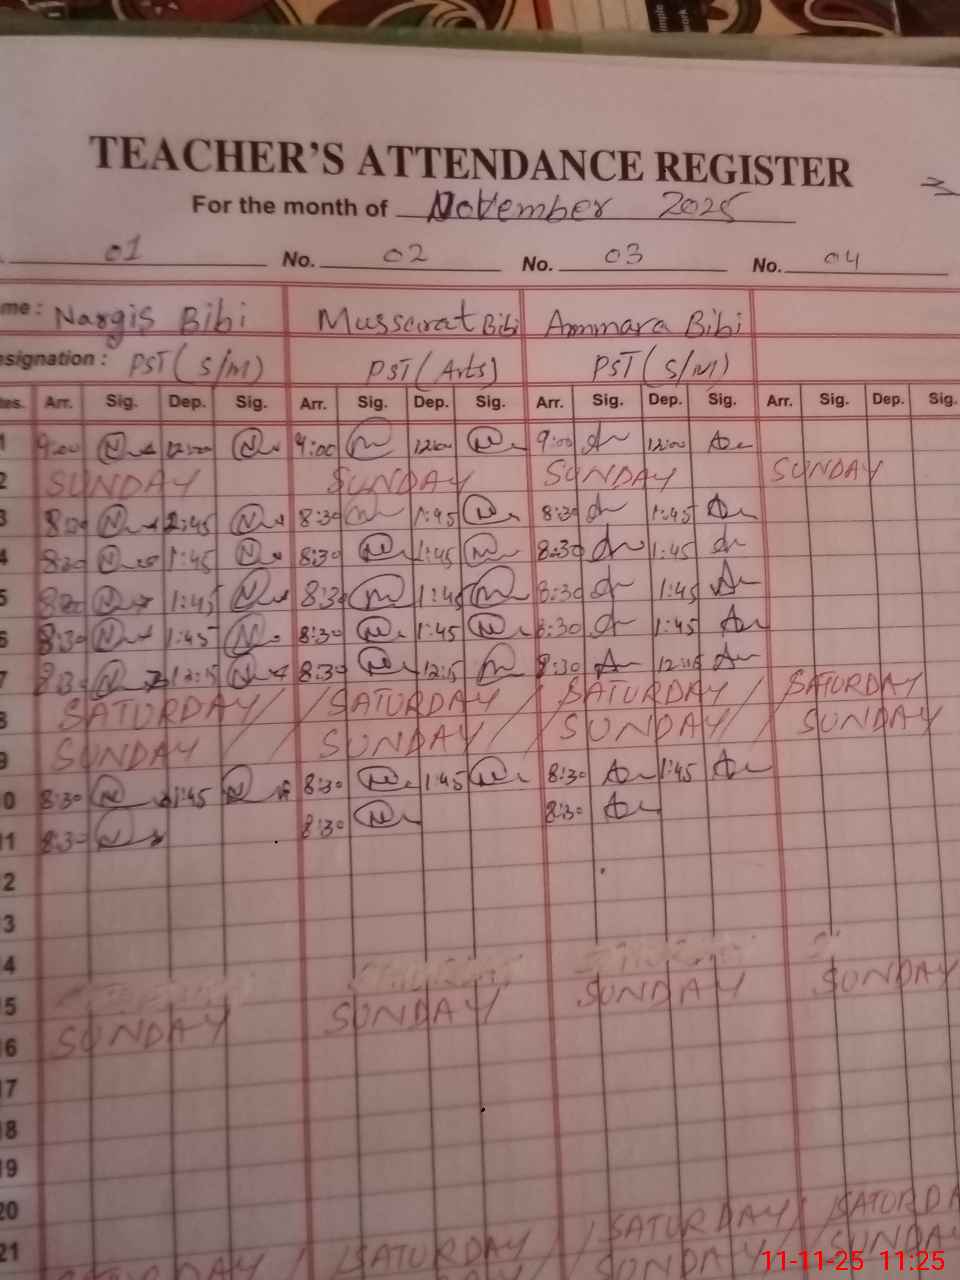 TEACHER'S ATTENDANCE REGISTER
For the month of November 2025
01 No. 02 No. 03 No. 04
me : Nargis Bibi Mussarat Bibi Ammara Bibi
esignation : PST ( S/M) PST ( Arts) PST ( S/M)
tes. Arr. Sig. Dep. Sig. Arr. Sig. Dep. Sig. Arr. Sig. Dep. Sig. Arr. Sig. Dep. Sig.
1 9:00 12:00 9:00 12:00 9:00 12:00
2 SUNDAY SUNDAY SUNDAY SUNDAY
3 8:30 8:30 1:45 8:30 1:45
4 8:30 1:45 8:30 1:45 8:30 1:45
5 8:30 1:45 8:30 1:45 8:30 1:45
6 8:30 1:45 8:30 1:45 8:30 1:45
7 8:30 12:15 8:30 12:15 8:30 12:15
8 SATURDAY / / SATURDAY / SATURDAY / / SATURDAY
9 SUNDAY / SUNDAY / SUNDAY / SUNDAY
0 8:30 1:45 8:30 1:45 8:30 1:45
11 8:30 8:30 8:30
2
3
4
5
6 SUNDAY SUNDAY SUNDAY SUNDAY
17
8
9
20
21 SATURDAY / / SATURDAY / / SATURDAY / / SATURDA
SUNDAY SUNDAY SUNDA
11-11-25 11:25